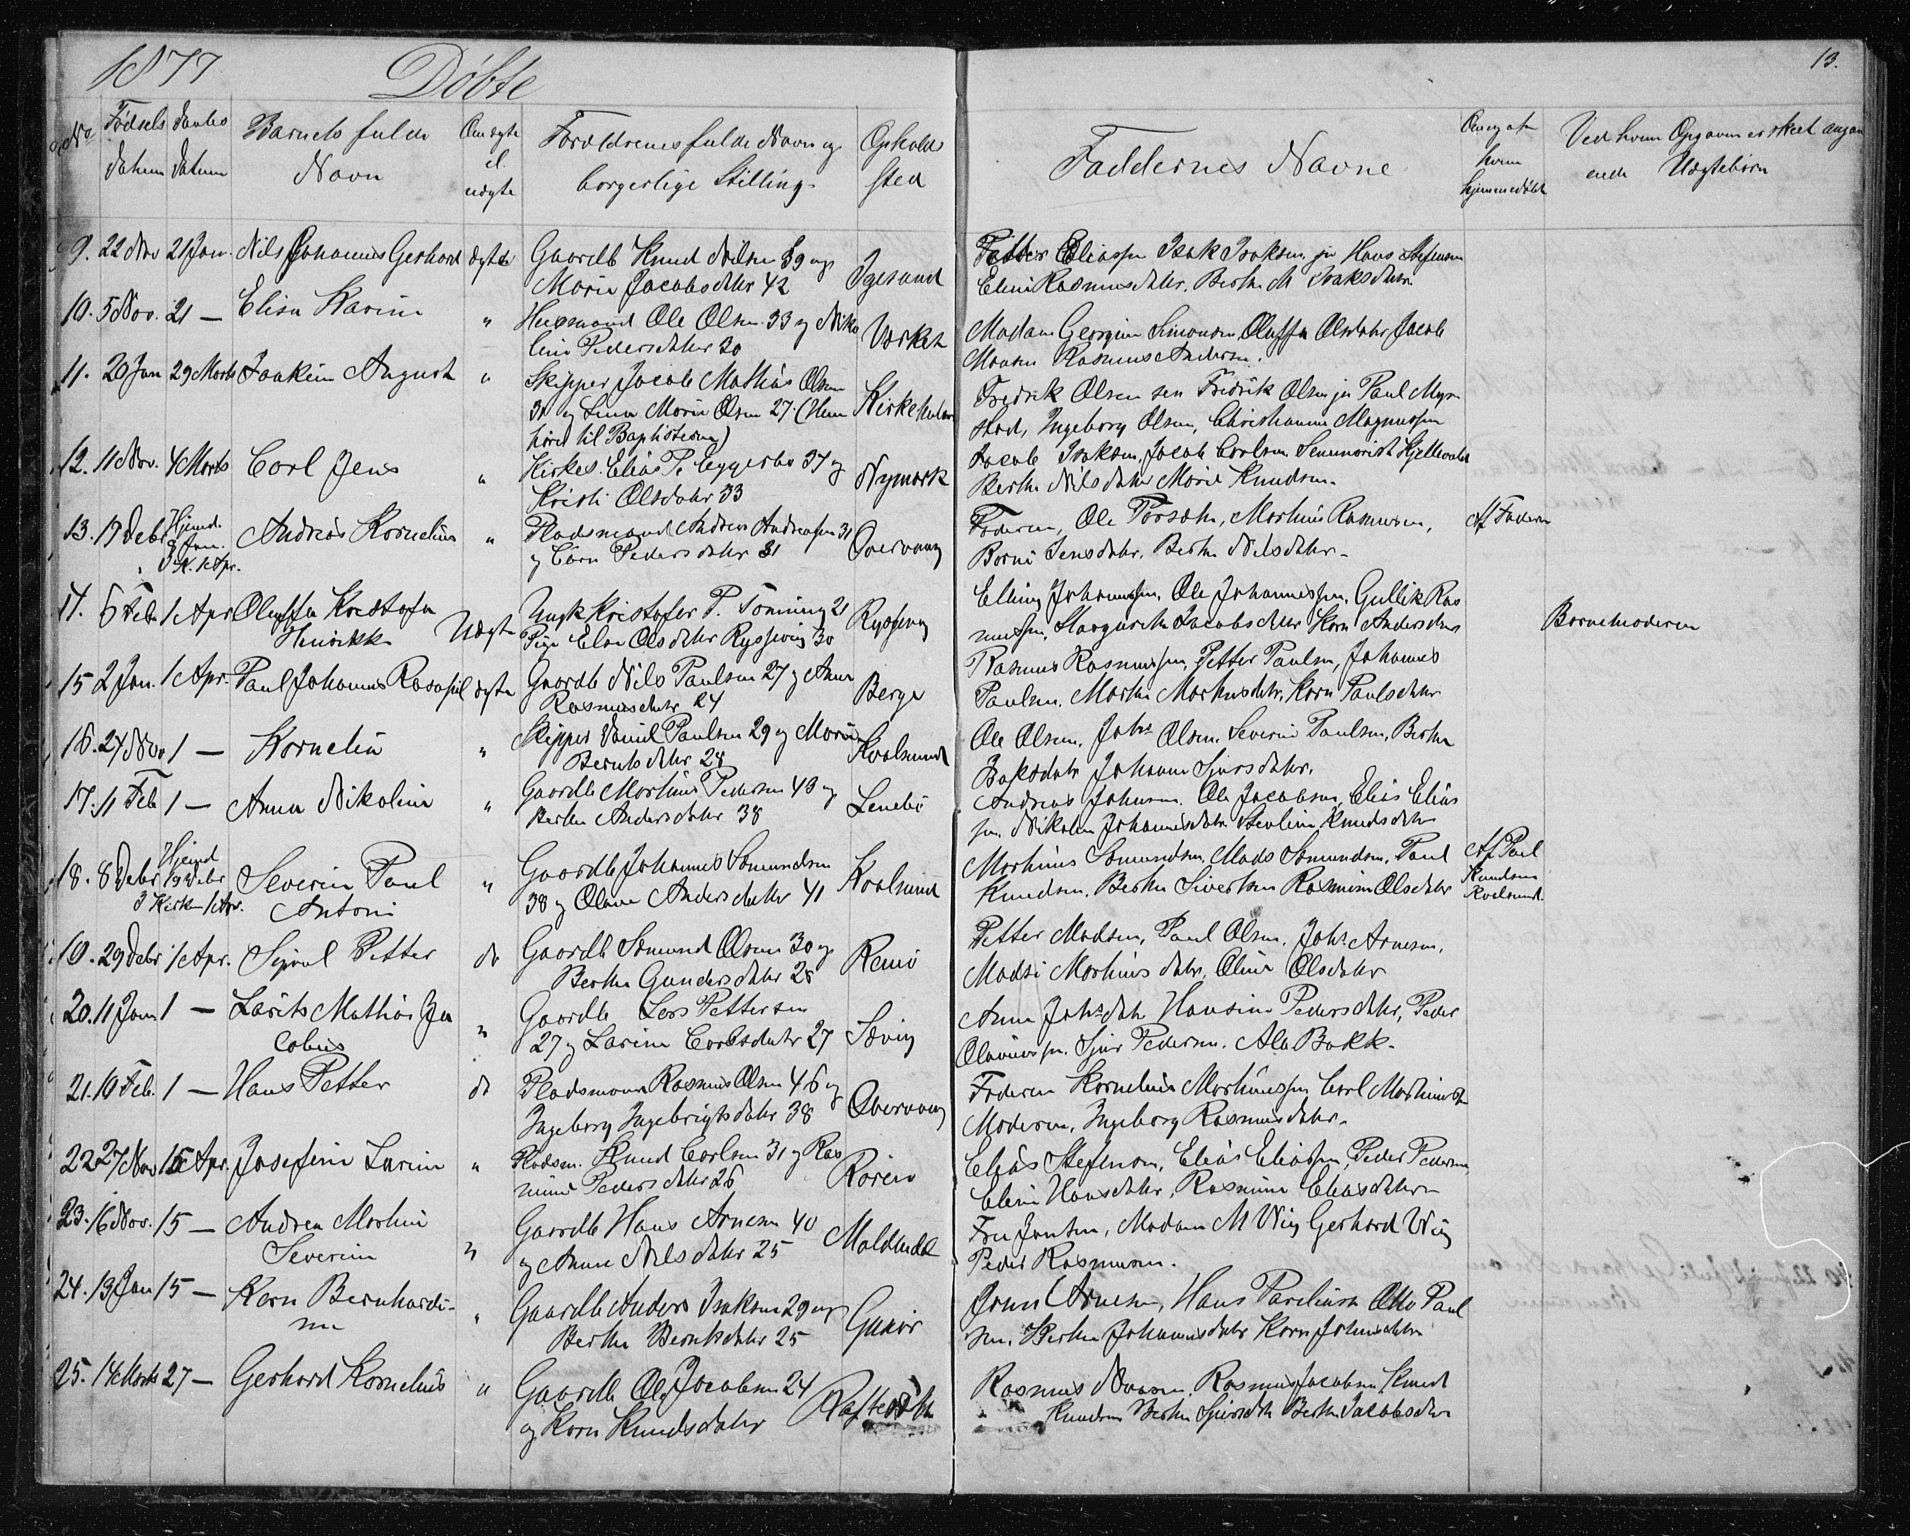 1877 Döbte
13.
No Fødsels Datum Daabs Datum Barnets fulde Navn Om ægte el. uægte Forældrenes fulde Navn og borgerlige Stilling Opholds sted
Faddernes Navne Om og af hvem hjemmedøbt Ved hvem Opgaven er skeet angaaende Uægtebørn
9. 22 Nov 21 Jan. Nils Johannes Gerhard ægte Gaardb Knud Nilsen 39 og Igesund
Marie Jacobsdatr 42
Petter Eliassen Isak Isaksen jr Hans Stefensen
Eline Rasmusdatr. Berthe M Isaksdatr
10. 5 Nov. 21 — Elisa Karine " Husmand Ole Olsen 33 og Niko
line Pedersdatr 30
Madam Georgine Simonsen Oluffa Olsdatr Jacob
Monsen Rasmus Andersen.
11. 20 Jan 29 Marts Joakim August " Skipper Jacob Mathias Olsen Kirkeholm
30 og Lina Marie Olsen 27. (Hun
hører til Baptisterne)
Fredrik Olsen sen Fredrik Olsen jr Paul Myr
stad, Ingeborg Olsen, Christianne Magnussen
12. 11 Nov. 4 Marts Carl Jens " Kirkes. Elias P. Eggesbø 37 og Nymark
Kristi Olsdatr 33
Jacob Isaksen, Jacob Carlsen Seminarist Kjellevold
Berthe Nilsdatr Marie Knudsen.
13. 17 Debr Hjemd. 9 Jan. i K. 1 Apr. Andreas Kornelius " Pladsmand Andreas Andreasen 31 Overvaag
og Caren Pedersdatr 31
Faderen, Ole Torsdtn, Martinus Rasmusen,
Jensdatr. Berthe Nilsdatr.
Af Faderen
14. 6 Feb 1 Apr Oluffa Kristofa Uægte Ungk Kristofer P. Tønning 21
Henrikke Pige Else Olsdatr Ryssevig 30 Ryssevig
Elling Johannesen, Ole Johannesen, Gullik Ras
musen, Margrethe Jacobsdatr Karn Andersdatr
Barnemoderen
15 2 Jan. 1 Apr. Paul Johannes Rasmus ægte Gaardb Nils Paulsen 27 og Anne Berge
Rasmusdatr 24
Rasmus Rasmussen, Petter Paulsen, Johannes
Paulsen. Marthe Markusdatr. Karn Paulsdatr
16. 24 Nov 1 — Kornelia " Skipper Daniel Paulsen 29 og Marie Kvalsund
Berntsdatr 28
Ole Olsen. Johs Olsen. Severin Paulsen, Berthe
Isaksdatr Johanne Sjursdatr.
17. 11 Feb 1 — Anna Nikoline " Gaardb Martinus Pedersen 43 og Lenebø
Berthe Andersdatr 38
Andreas Johnsen. Ole Jacobsen, Elias Elias
sen. Nikoline Johannesdatr Knudsdatr
18. 8 Debr Hjemd 19 Debr i Kirken 1 Apr. Severin Paul " Gaardb Johannes Sømundsen Kvalsund
Antoni 38 og Olave Andersdatr 41
Martinus Sømundsen, Mads Sømundsen, Paul
Knudsen. Berthe Sivertsen Rasmine Olsdatr
Af Paul
Knudsen
Kvalsund.
19. 29 Debr 1 Apr. Sjoul Petter do Gaardb Sømund Olsen 30 og Remø
Berthe Gundersdatr 28
Petter Madsen, Paul Olsen. Johs Arnesen.
Madsi Martinusdatr. Oline Olsdatr
20. 11 Jan 1 — Larits Mathias Ja " Gaardb Lars Pettersen Sævig
cobus 27 og Larine Carlsdatr 27
Anne Johs datr Hansine Pedersdatr, Peder
Olavussen. Sjur Pedersen. Ale Bakk.
21. 10 Feb. 1 — Hans Petter do Pladsmand Rasmus Olsen 46 og Overvaag
Ingeborg Ingebrigtsdatr 38
Faderen Kornelius Martinussen Carl Martinusen
Moderen, Ingeborg Rasmusdatr.
22 27 Nov 15 Apr. Josefine Larine " Pladsm. Knud Carlsen 31 og Ras
mine Pedersdatr 26
Elias Stefensen, Elias Eliassen, Peder Pedersen
Eline Hansdatr, Rasmine Eliasdatr
23. 16 Nov. 15 — Andrea Martine " Gaardb Hans Arnesen 40
Severine og Anne Nilsdatr 25
Fru Jentsen, Madam M Wiig Gerhard Wiig
Peder Rasmusen.
24. 13 Jan 15 — Karn Bernhardi- " Gaardb Anders Isaksen 29 og
ne Berthe Berntsdatr 25
Arnesen, Hans Otto Paul
sen. Berthe Johannesdatr Karn Johnsdatr
25. 14 Marts 27 — Gerhard Kornelius " Gaardb Ole Jacobsen 24 Raftesæth
og Karn Knudsdatr
Rasmus Monsen, Rasmus Jacobsen Knud
Knudsen Berthe Sjursdtr Berthe Jacobsdatr